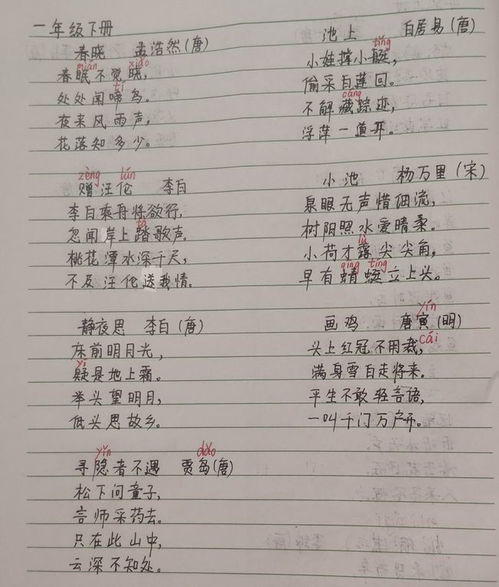 一年级下册
春晓 孟浩然(唐)
mián xiǎo
春眠不觉晓,
tí
处处闻啼鸟。
夜来风雨声,
花落知多少。
zèng lún
赠汪伦 李白
李白乘舟将欲行,
tà
忽闻岸上踏歌声。
桃花潭水深千尺,
不及汪伦送我情。
静夜思 李白(唐)
床前明月光,
yí
疑是地上霜。
举头望明月,
低头思故乡。
yǐn dǎo
寻隐者不遇 贾岛(唐)
松下问童子,
言师采药去。
只在此山中,
云深不知处。
池上 白居易(唐)
tǐng
小娃撑小艇,
偷采白莲回。
cáng
不解藏踪迹,
浮萍一道开。
小池 杨万里(宋)
泉眼无声惜细流,
树阴照水爱晴柔。
lù
小荷才露尖尖角,
qīng tíng
早有蜻蜓立上头。
yín
画鸡 唐寅(明)
cái
头上红冠不用裁,
满身雪白走将来。
平生不敢轻言语,
一叫千门万户开。